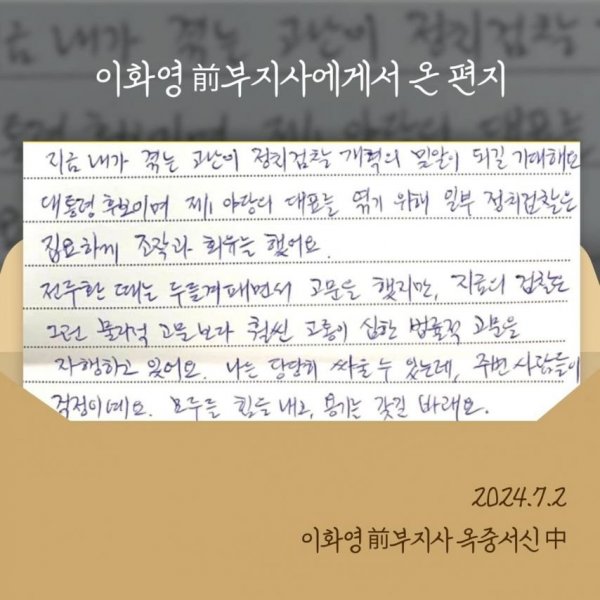 이화영 前부지사에게서 온 편지
지금 내가 겪는 고난이 정치검찰 개혁의 밀알이 되길 기대해요
대통령 후보이며 제1 야당의 대표를 엮기 위해 일부 정치검찰은
집요하게 조작과 회유를 했어요.
전두환 때는 두들겨패면서 고문을 했지만, 지금의 검찰은
그런 물리적 고문보다 훨씬 고통이 심한 법률적 고문을
자행하고 있어요. 나는 당당히 싸울 수 있는데, 주변 사람들이
걱정이예요. 모두들 힘들 내고, 용기를 갖길 바래요.
2024.7.2
이화영 前부지사 옥중서신 中